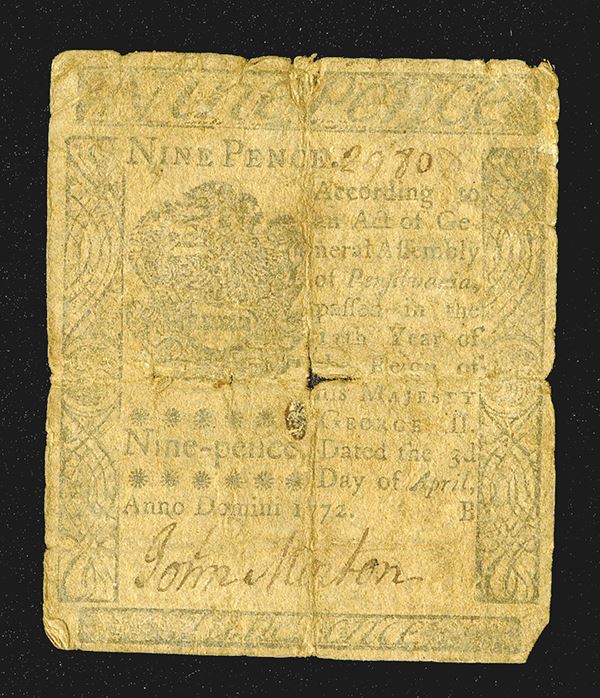 Nine Pence
NINE PENCE.
According to
an Act of Ge-
neral Assembly
of Pensilvania,
passed in the
Year of
the Reign of
his MAJESTY
GEORGE
Nine-pence.
Dated the 3d
Day of April,
Anno Domini 1772. B
John
Pence